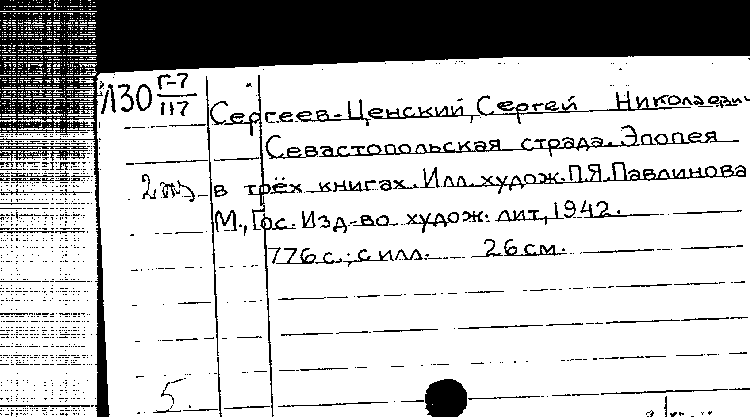 Л30 Г-7/117
Сергеев-Ценский, Сергей Николаевич
Севастопольская страда. Эпопея
2 экз в трёх книгах. Илл. худож. П.Я.Павлинова
М., Гос. Изд-во худож. лит, 1942.
776 с.; с илл. 26 см.
5.